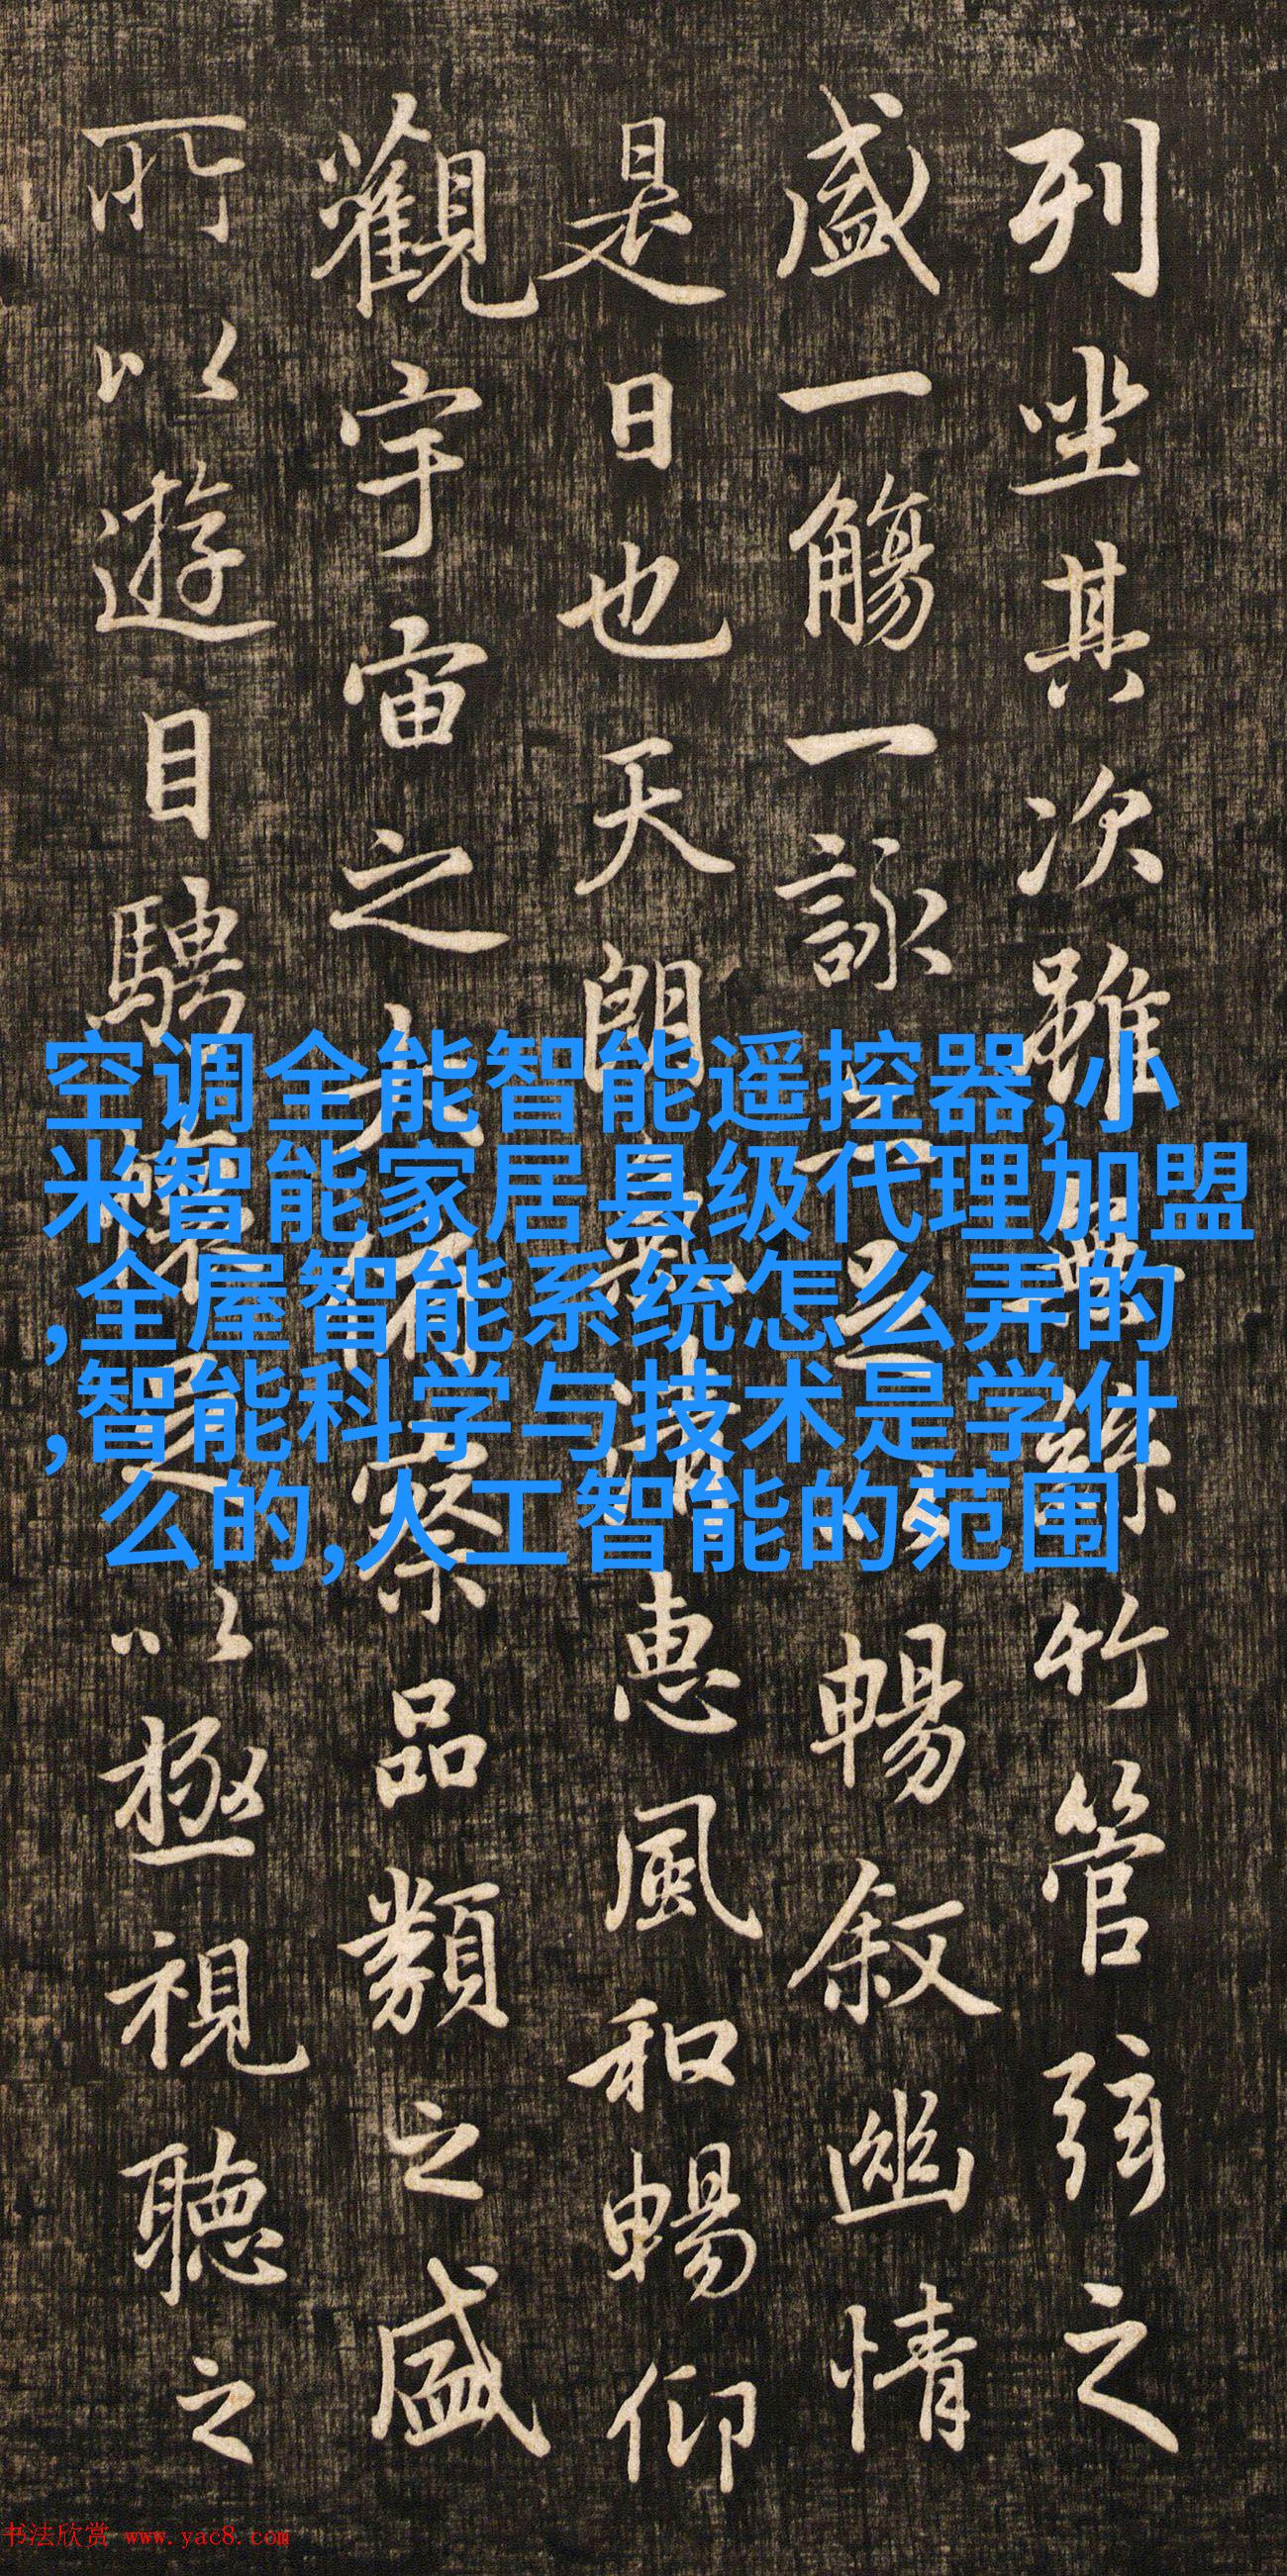 列坐其次雖無絲竹管弦之
盛一觴一詠亦足以暢叙幽情
是日也天朗氣清惠風和暢仰
觀宇宙之大俯察品類之盛
所以遊目騁懷足以極視聽之
空调全能智能遥控器,小
米智能家居县级代理加盟
,全屋智能系统怎么弄的
,智能科学与技术是学什
么的,人工智能的范围
书法欣赏 www.yac8.com